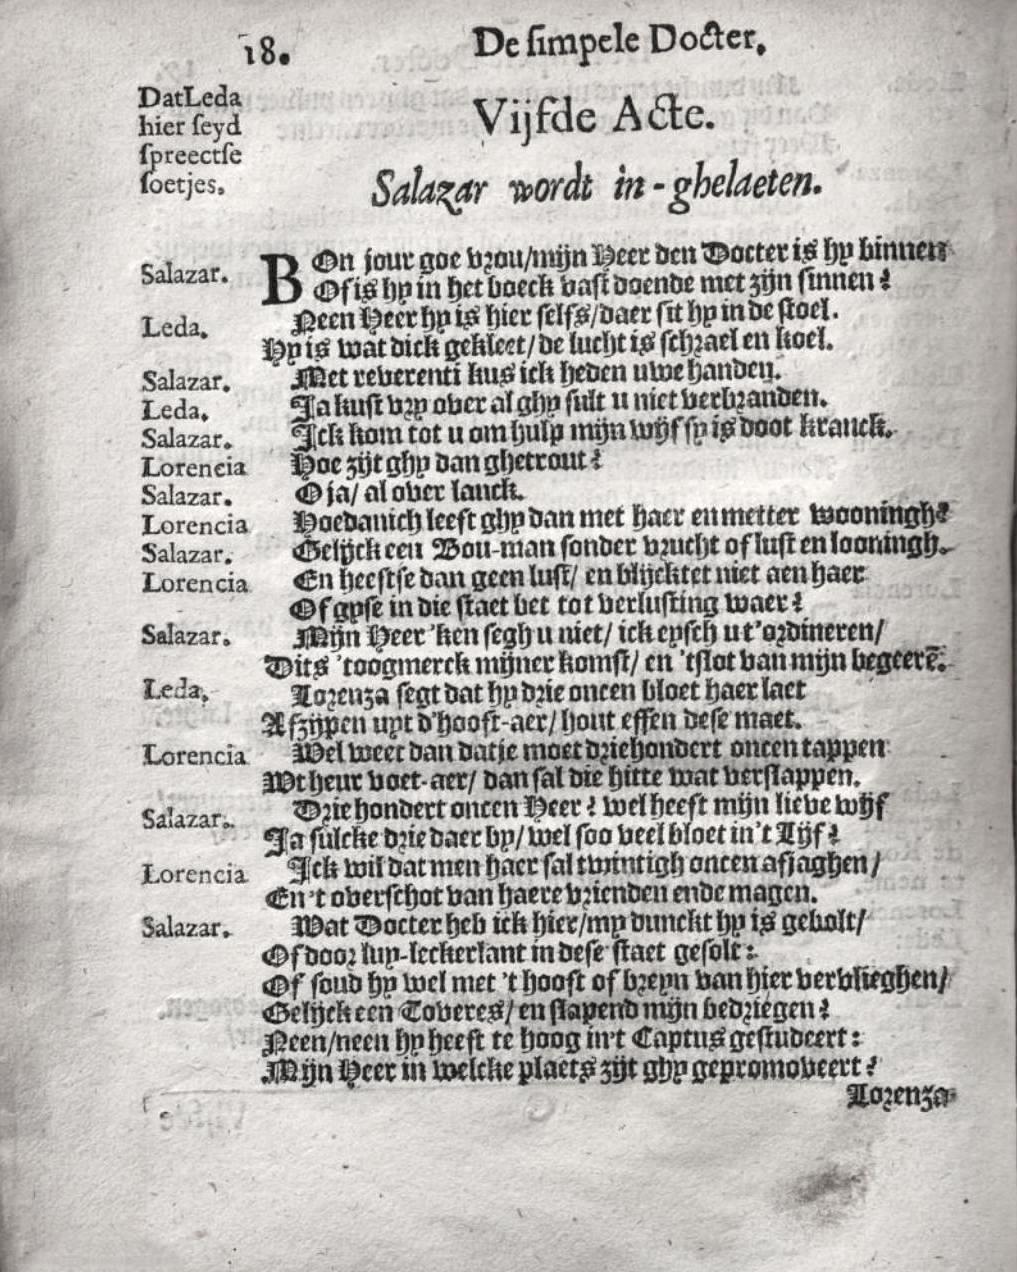 18. De simpele Docter.
Dat Leda
hier seyd
spreectse
soetjes.
Vijfde Acte.
Salazar wordt in-ghelaeten.
Salazar. BOn jour goe vrou/mijn Heer den Docter is hy binnen
Of is hy in het boeck vast doende met zijn sinnen?
Leda. Neen Heer hy is hier selfs/daer sit hy in de stoel.
Hy is wat dick gekleet/de lucht is schrael en koel.
Salazar. Met reverenti kus ick heden uwe handen.
Leda. Ja kust vry over al ghy sult u niet verbranden.
Salazar. Ick kom tot u om hulp mijn wijf sy is doot kranck.
Lorencia Hoe zijt ghy dan ghetrout?
Salazar. O ja/ al over lanck.
Lorencia Hoedanich leeft ghy dan met haer en metter wooningh?
Salazar. Gelijck een Bou-man sonder vrucht of lust en looningh.
Lorencia En heeftse dan geen lust/ en blijcktet niet aen haer
Of gyse in die staet bet tot verlusting waer?
Salazar. Mijn Heer 'ken segh u niet/ ick eysch u t'ordineren/
Dits 'toogmerck mijner komst/ en 'tslot van mijn begeerē.
Leda. Lorenza segt dat hy drie oncen bloet haer laet
Afzijpen uyt d'hooft-aer/ hout effen dese maet.
Lorencia Wel weet dan datje moet driehondert oncen tappen
Wt heur voet-aer/ dan sal die hitte wat verslappen.
Salazar. Drie hondert oncen Heer? wel heeft mijn lieve wijf
Ja sulcke drie daer by/ wel soo veel bloet in't Lijf?
Lorencia Ick wil dat men haer sal twintigh oncen afjaghen/
En 't overschot van haere vrienden ende magen.
Salazar. Wat Docter heb ick hier/my dunckt hy is gebolt/
Of door luy-leckerlant in dese staet gesolt:
Of soud hy wel met 't hooft of breyn van hier vervlieghen/
Gelijck een Toveres/ en slapend mijn bedriegen?
Neen/neen hy heeft te hoog in't Captus gestudeert:
Mijn Heer in welcke plaets zijt ghy gepromoveert?
Lorenza